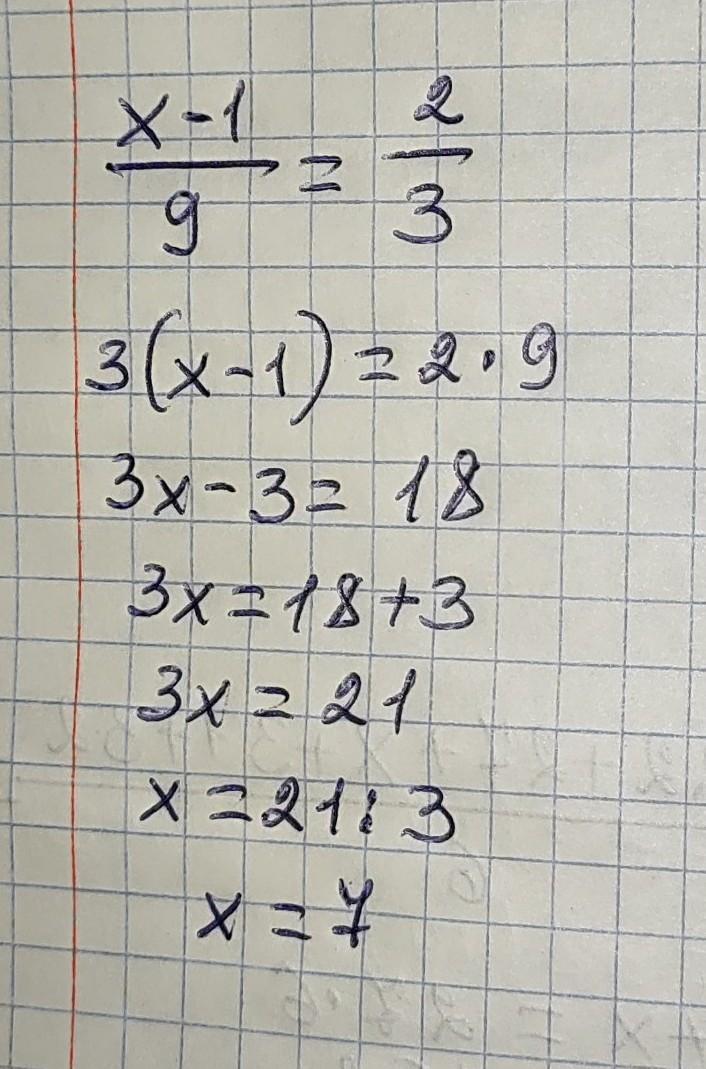 x-1/9 = 2/3
3(x-1) = 2·9
3x-3 = 18
3x = 18+3
3x = 21
x = 21:3
x = 7